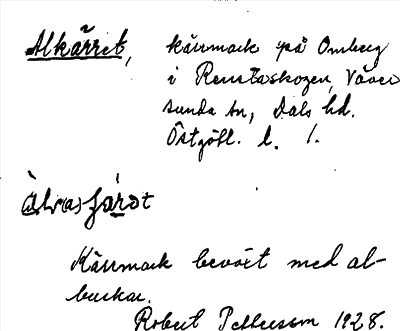 Alkärret, kärrmark på Omberg
i Renstadskogen, Väver-
sunda sn, Dals hd.
Östgötl. l. 1.
Kärrmark bevöxt med al-
buskar.
Robert Pettersson 1928.